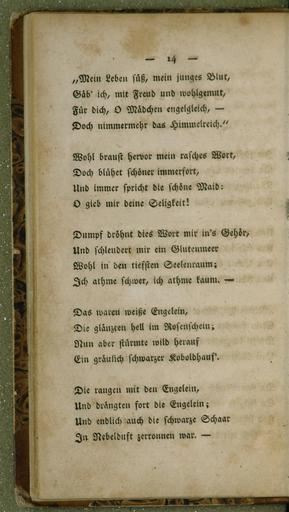 — 14 —
„Mein Leben süß, mein junges Blut,
Gäb' ich, mit Freud und wohlgemut,
Für dich, O Mädchen engelgleich, —
Doch nimmermehr das Himmelreich.“
Wohl braust hervor mein rasches Wort,
Doch blühet schöner immerfort,
Und immer spricht die schöne Maid:
O gieb mir deine Seligkeit!
Dumpf dröhnt dies Wort mir in's Gehör,
Und schleudert mir ein Glutenmeer
Wohl in den tiefsten Seelenraum;
Ich athme schwer, ich athme kaum. —
Das waren weiße Engelein,
Die glänzten hell im Rosenschein;
Nun aber stürmte wild herauf
Ein gräulich schwarzer Koboldhauf'.
Die rangen mit den Engelein,
Und drängten fort die Engelein;
Und endlich auch die schwarze Schaar
In Nebelduft zerronnen war. —